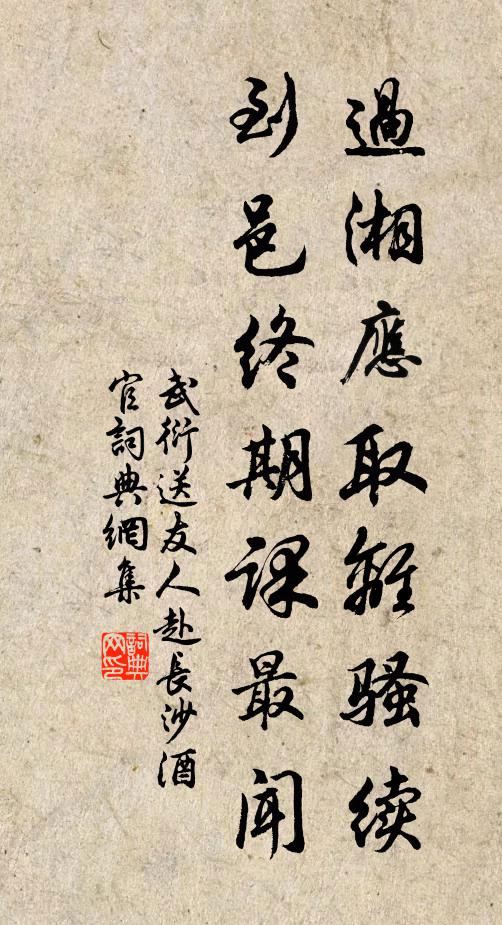 過湘應取離騷续
到邑终期課最闻
武衍送友人赴長沙酒
官詞典網集
詞典
网印